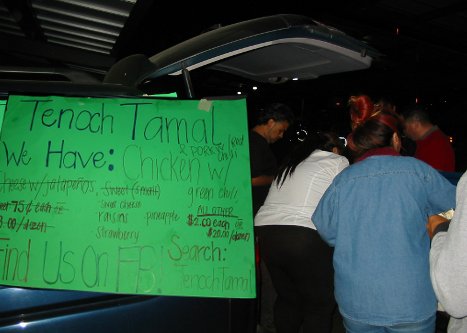 Tenoch Tamal
We Have: Chicken w/
& PORK w/ red
chili
green chili
Cheese w/ jalapeños
Sweet (Small)
Sweet 75¢ each or
raisins pineapple
Strawberry
ALL OTHER
$2.00 each or
$20.00/dozen
Find Us On FB!
Search:
Tenoch Tamal